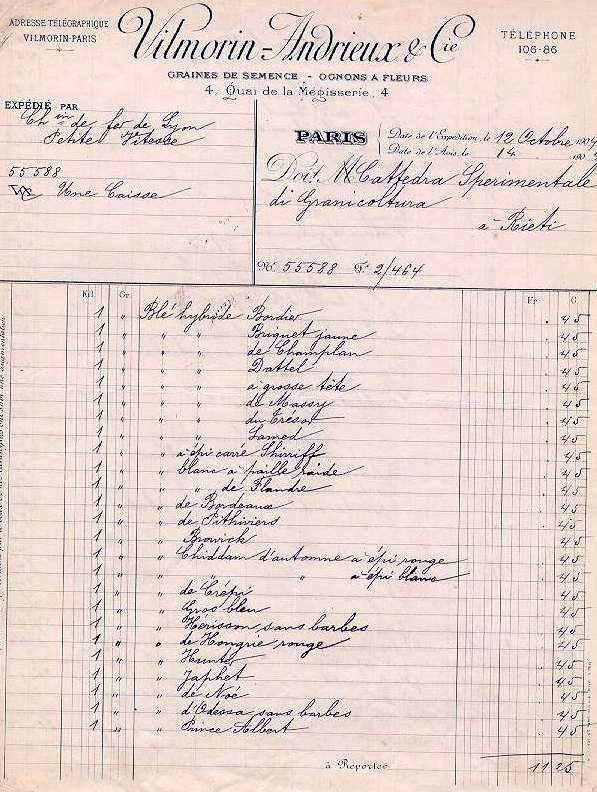 ADRESSE TÉLÉGRAPHIQUE
VILMORIN-PARIS
Vilmorin-Andrieux & Cie
TÉLÉPHONE
106-86
GRAINES DE SEMENCE - OGNONS A FLEURS
4, Quai de la Mégisserie, 4
EXPÉDIÉ PAR
Ch in de fer de Lyon
Petite Vitesse
55588
Une Caisse
PARIS
Date de l'Expédition, le 12 Octobre 190
Date de l'Avis, le 14 190
Doit M Cattedra Sperimentale
di Granicoltura
à Rieti
No. 55588 Fo. 2/464
Kil. Gr. Fr. C
1 " Blé hybride Bordier . 45
1 " " " Briquet jaune . 45
1 " " " de Champlan . 45
1 " " " Dattel . 45
1 " " " à grosse tête . 45
1 " " " de Massy . 45
1 " " " du Trésor . 45
1 " " " Lamed . 45
1 " " à épi carré Shirriff . 45
1 " blanc à paille raide . 45
1 " " " de Flandre . 45
1 " " de Bordeaux . 45
1 " " de Pithiviers . 45
1 " " Browick . 45
1 " " Chiddam d'automne à épi rouge . 45
1 " " " " à épi blanc . 45
1 " " de Crépi . 45
1 " " Gros bleu . 45
1 " " Hérisson sans barbes . 45
1 " " de Hongrie rouge . 45
1 " " Hunter . 45
1 " " Japhet . 45
1 " " de Noé . 45
1 " " d'Odessa sans barbes . 45
1 " " Prince Albert . 45
à Reporter 11 25